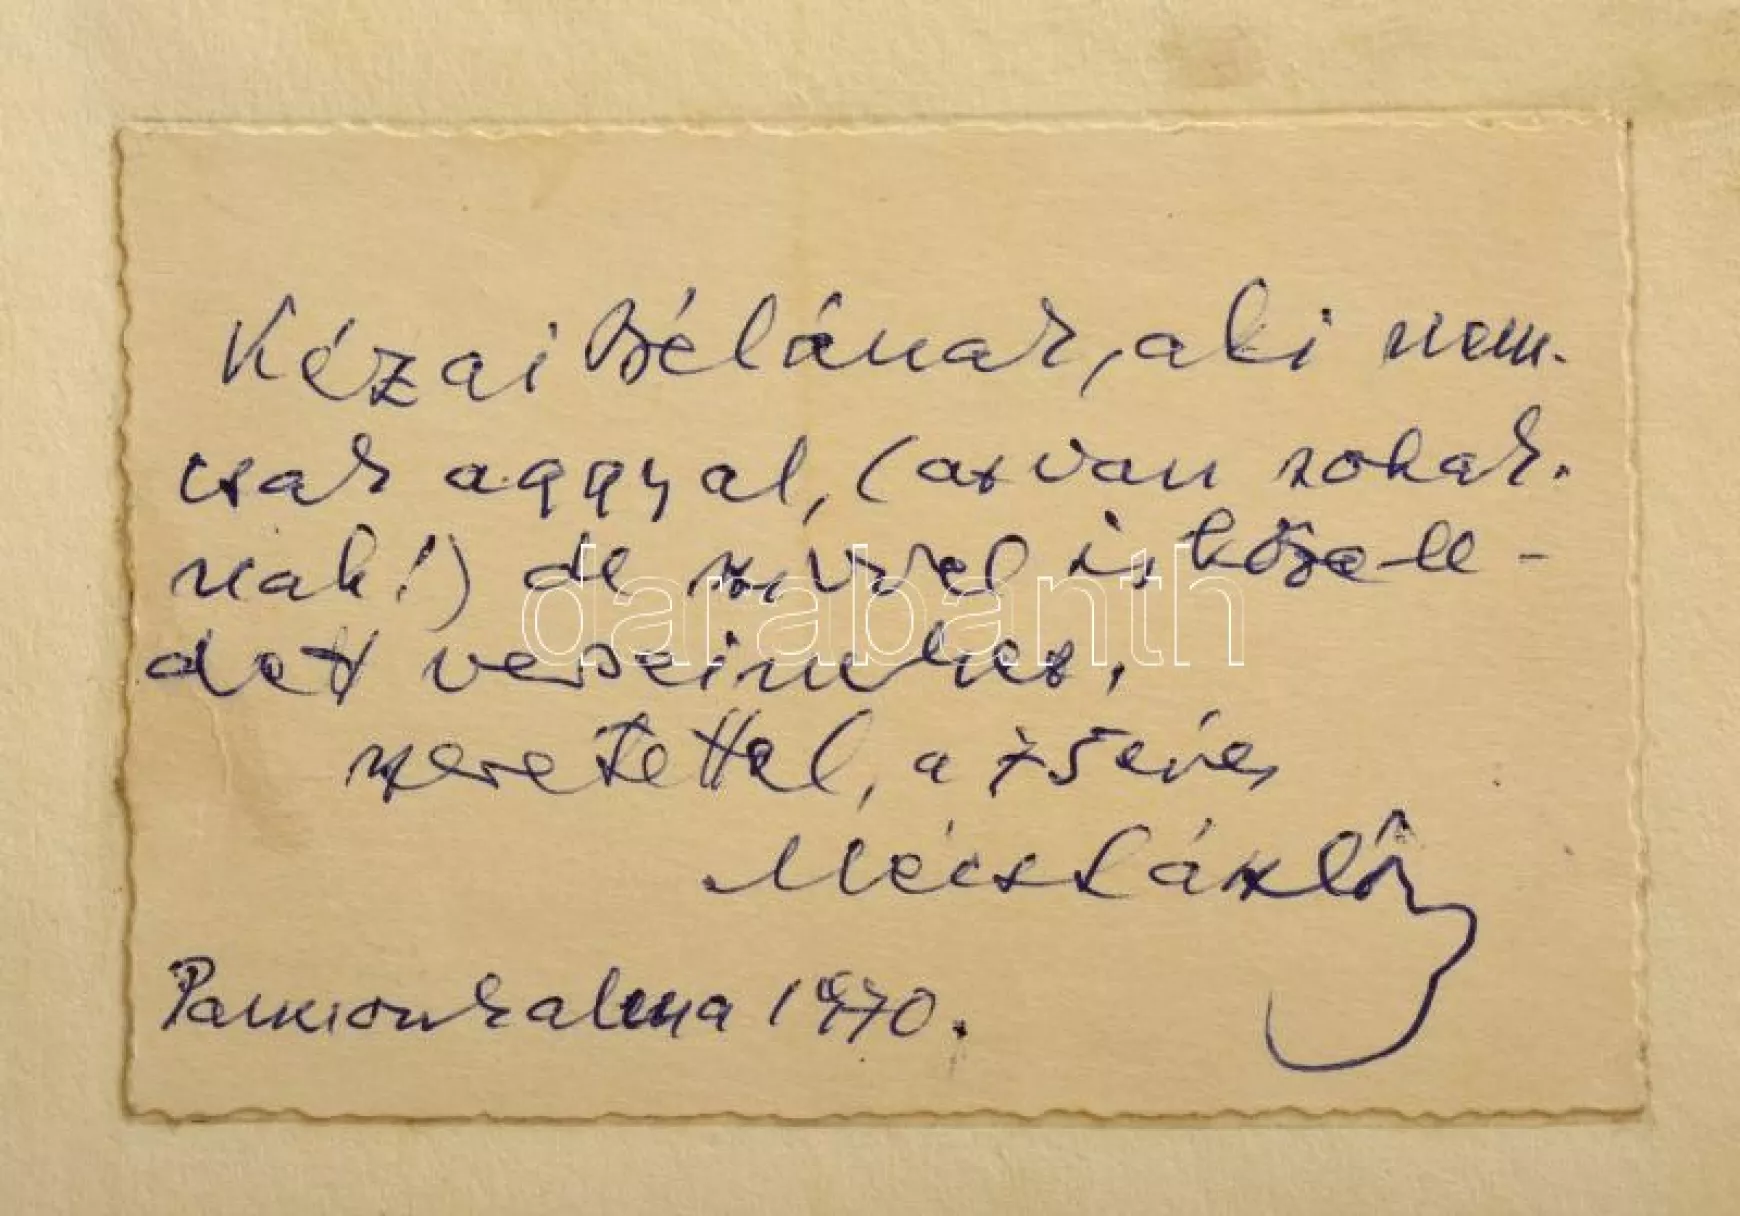 Kézai Bélának, aki nem-
csak aggyal, (az van sokak-
nak!) de szívvel is köze-le-
dett verseimhez,
szeretettel, a 75 éves
Mécs László
Pannonhalma 1970.
darabanth